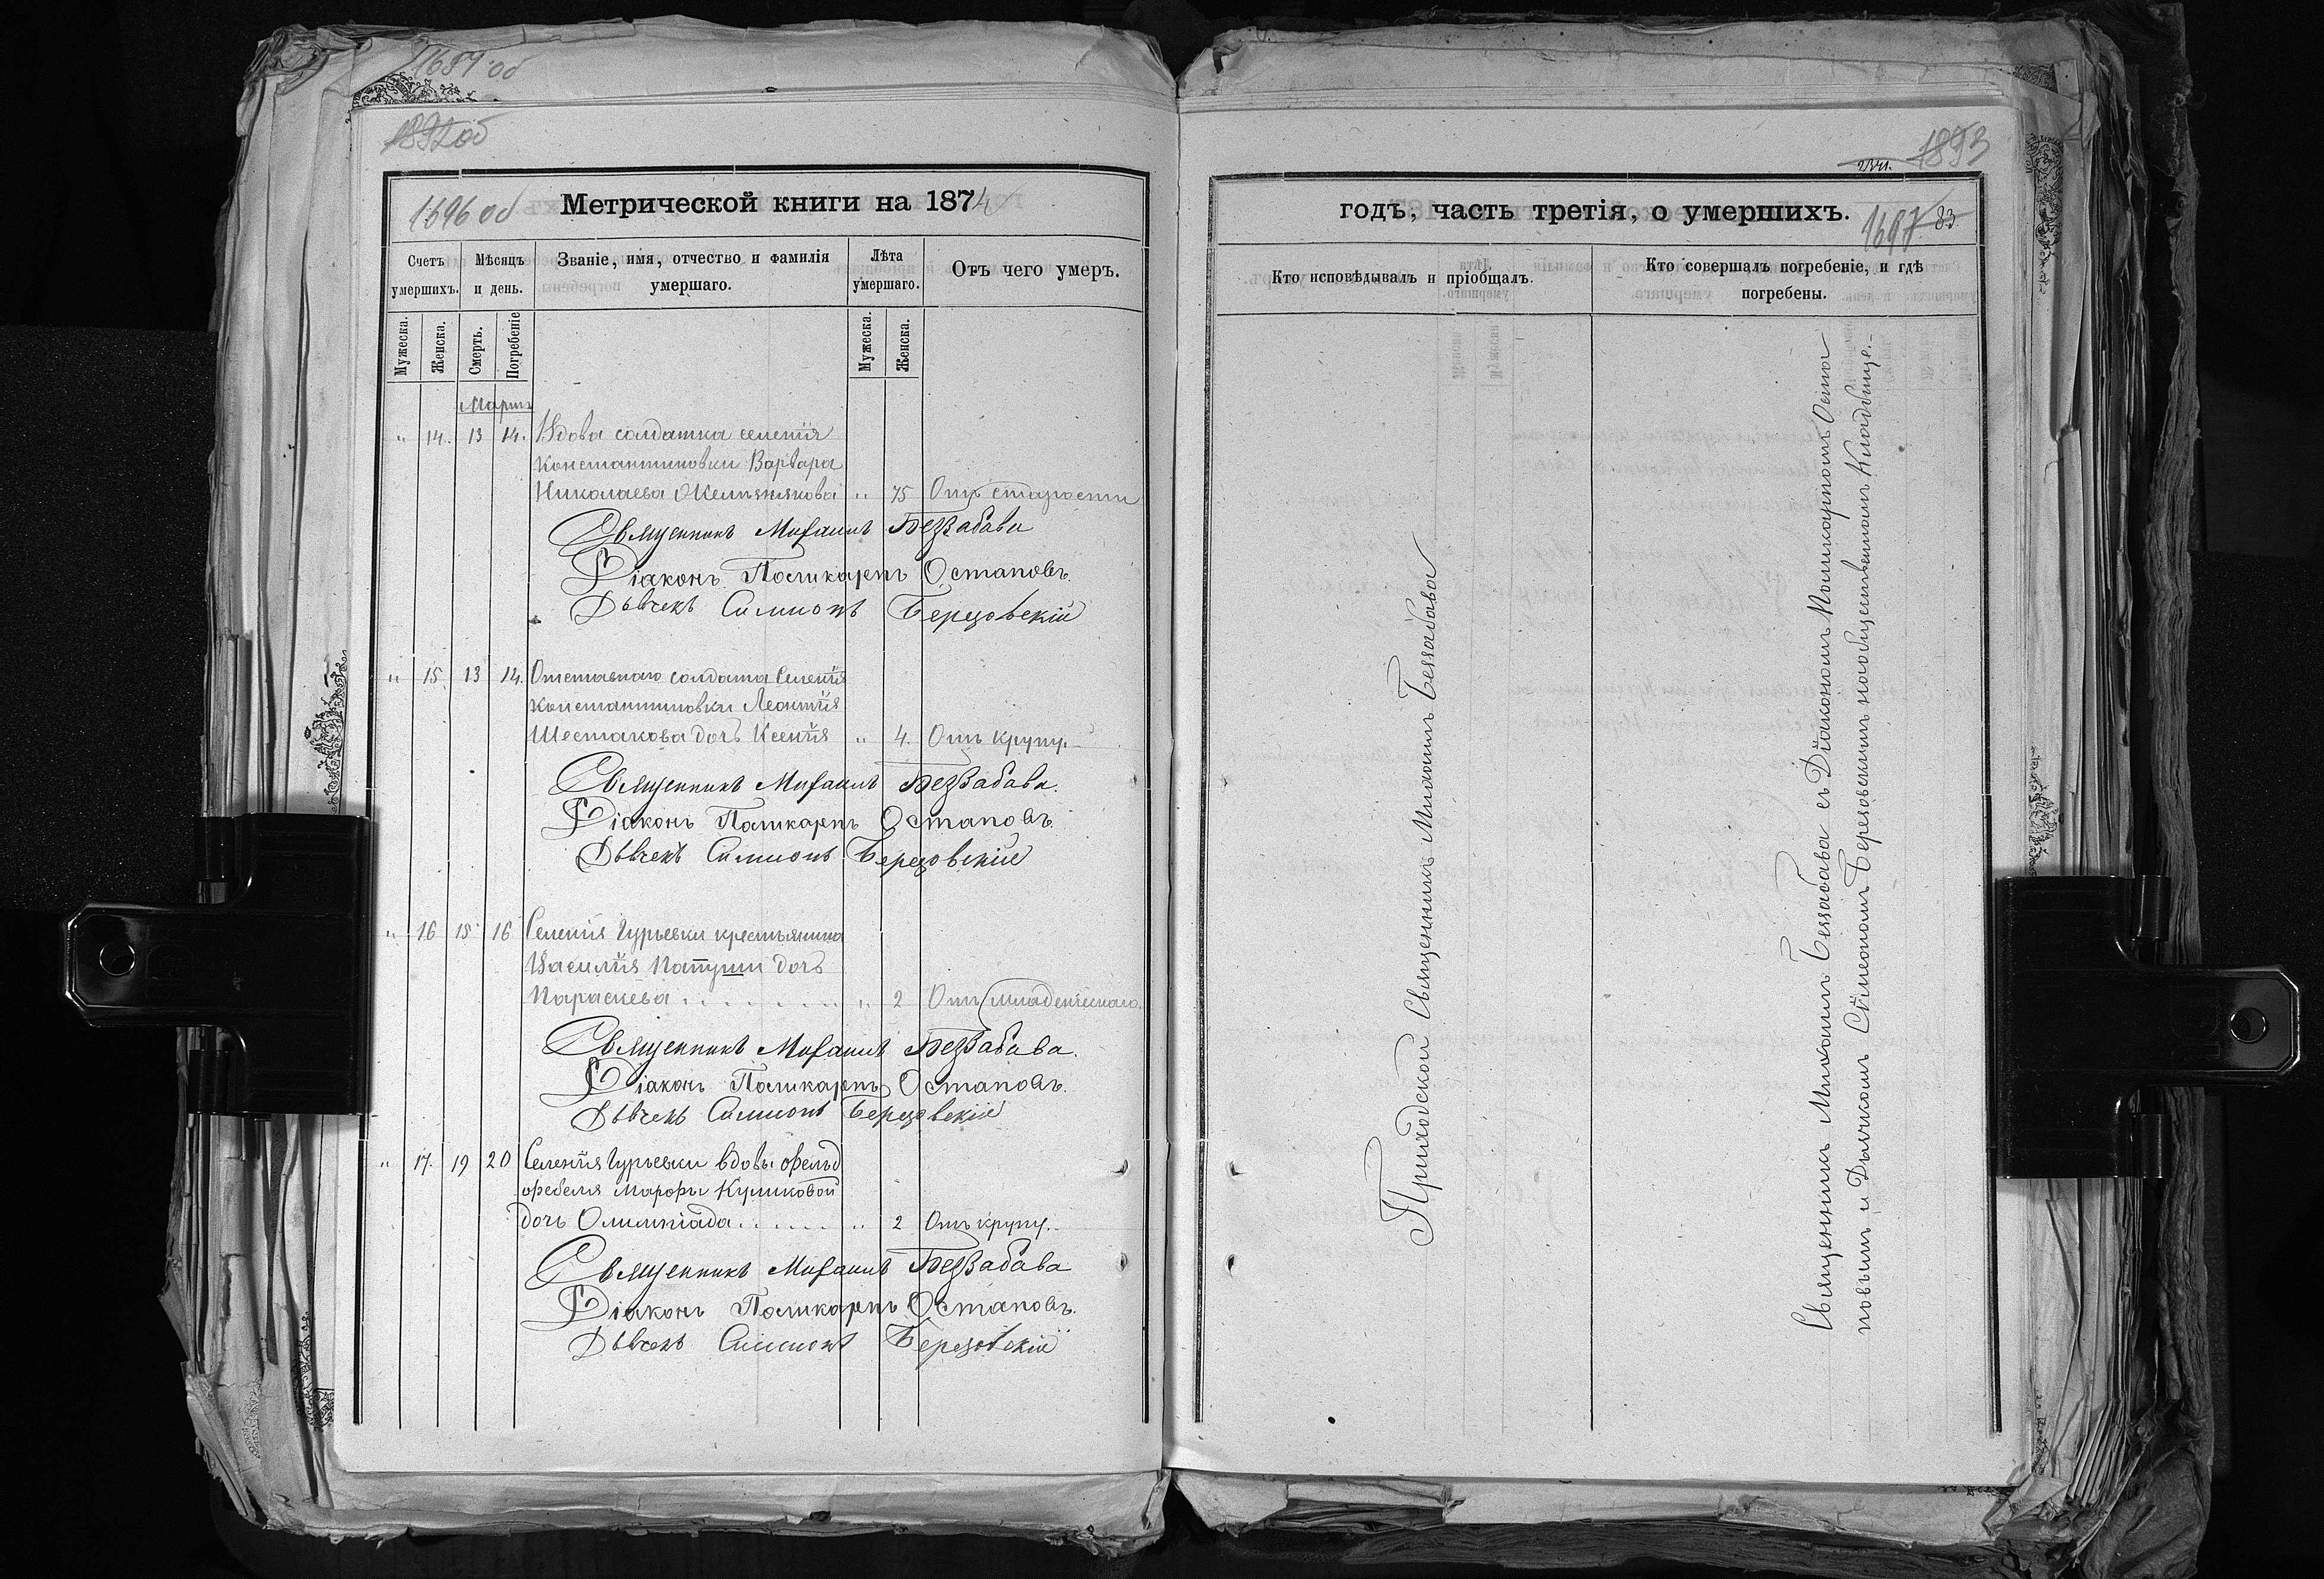 1697 об
1892 об
1696 об
Метрической книги на 1874
Счетъ умершихъ.
Мѣсяцъ и день.
Званіе, имя, отчество и фамилія умершаго.
Лѣта умершаго.
Отъ чего умеръ.
Мужеска.
Женска.
Смерть.
Погребеніе
Мужеска.
Женска.
Мартъ
" 14. 13 14. Вдова солдатка селенія
Константиновки Варвара
Николаева " 75 Отъ старости
Священникъ Михаилъ Беззабава
Діаконъ Поликарпъ Остаповъ.
Дьячекъ Симеонъ Березовскій
" 15. 13 14. Отставнаго солдата Селенія
Константиновки Леонтія
Шестакова дочь Ксенія " 4. Отъ крупу.
Священникъ Михаилъ Беззабава.
Діаконъ Поликарпъ Остаповъ.
Дьячекъ Симеонъ Березовскій
" 16 15 16 Селенія Гурьевки крестьянина
Василія Папуши дочь
Параскева . . . . . . . . " 2 Отъ младенческаго
Священникъ Михаилъ Беззабава.
Діаконъ Поликарпъ Остаповъ.
Дьячекъ Симеонъ Березовскій
" 17. 19 20 Селенія Гурьевки вдовы фельд
фебеля Марфы Куликовой
дочь Олимпіада . . . . . . " 2 Отъ крупу.
Священникъ Михаилъ Беззабава
Діаконъ Поликарпъ Остаповъ.
Дьячекъ Симеонъ Березовскій
1893
годъ, часть третія, о умершихъ.
1697
83
Кто исповѣдывалъ и пріобщалъ.
Кто совершалъ погребеніе, и гдѣ погребены.
Приходской Священникъ Михаилъ Беззабава
Священникъ Михаилъ Беззабава съ Діакономъ Поликарпомъ Оста
повымъ и Дьячкомъ Симеономъ Березовскимъ на общественномъ Кладбищѣ.